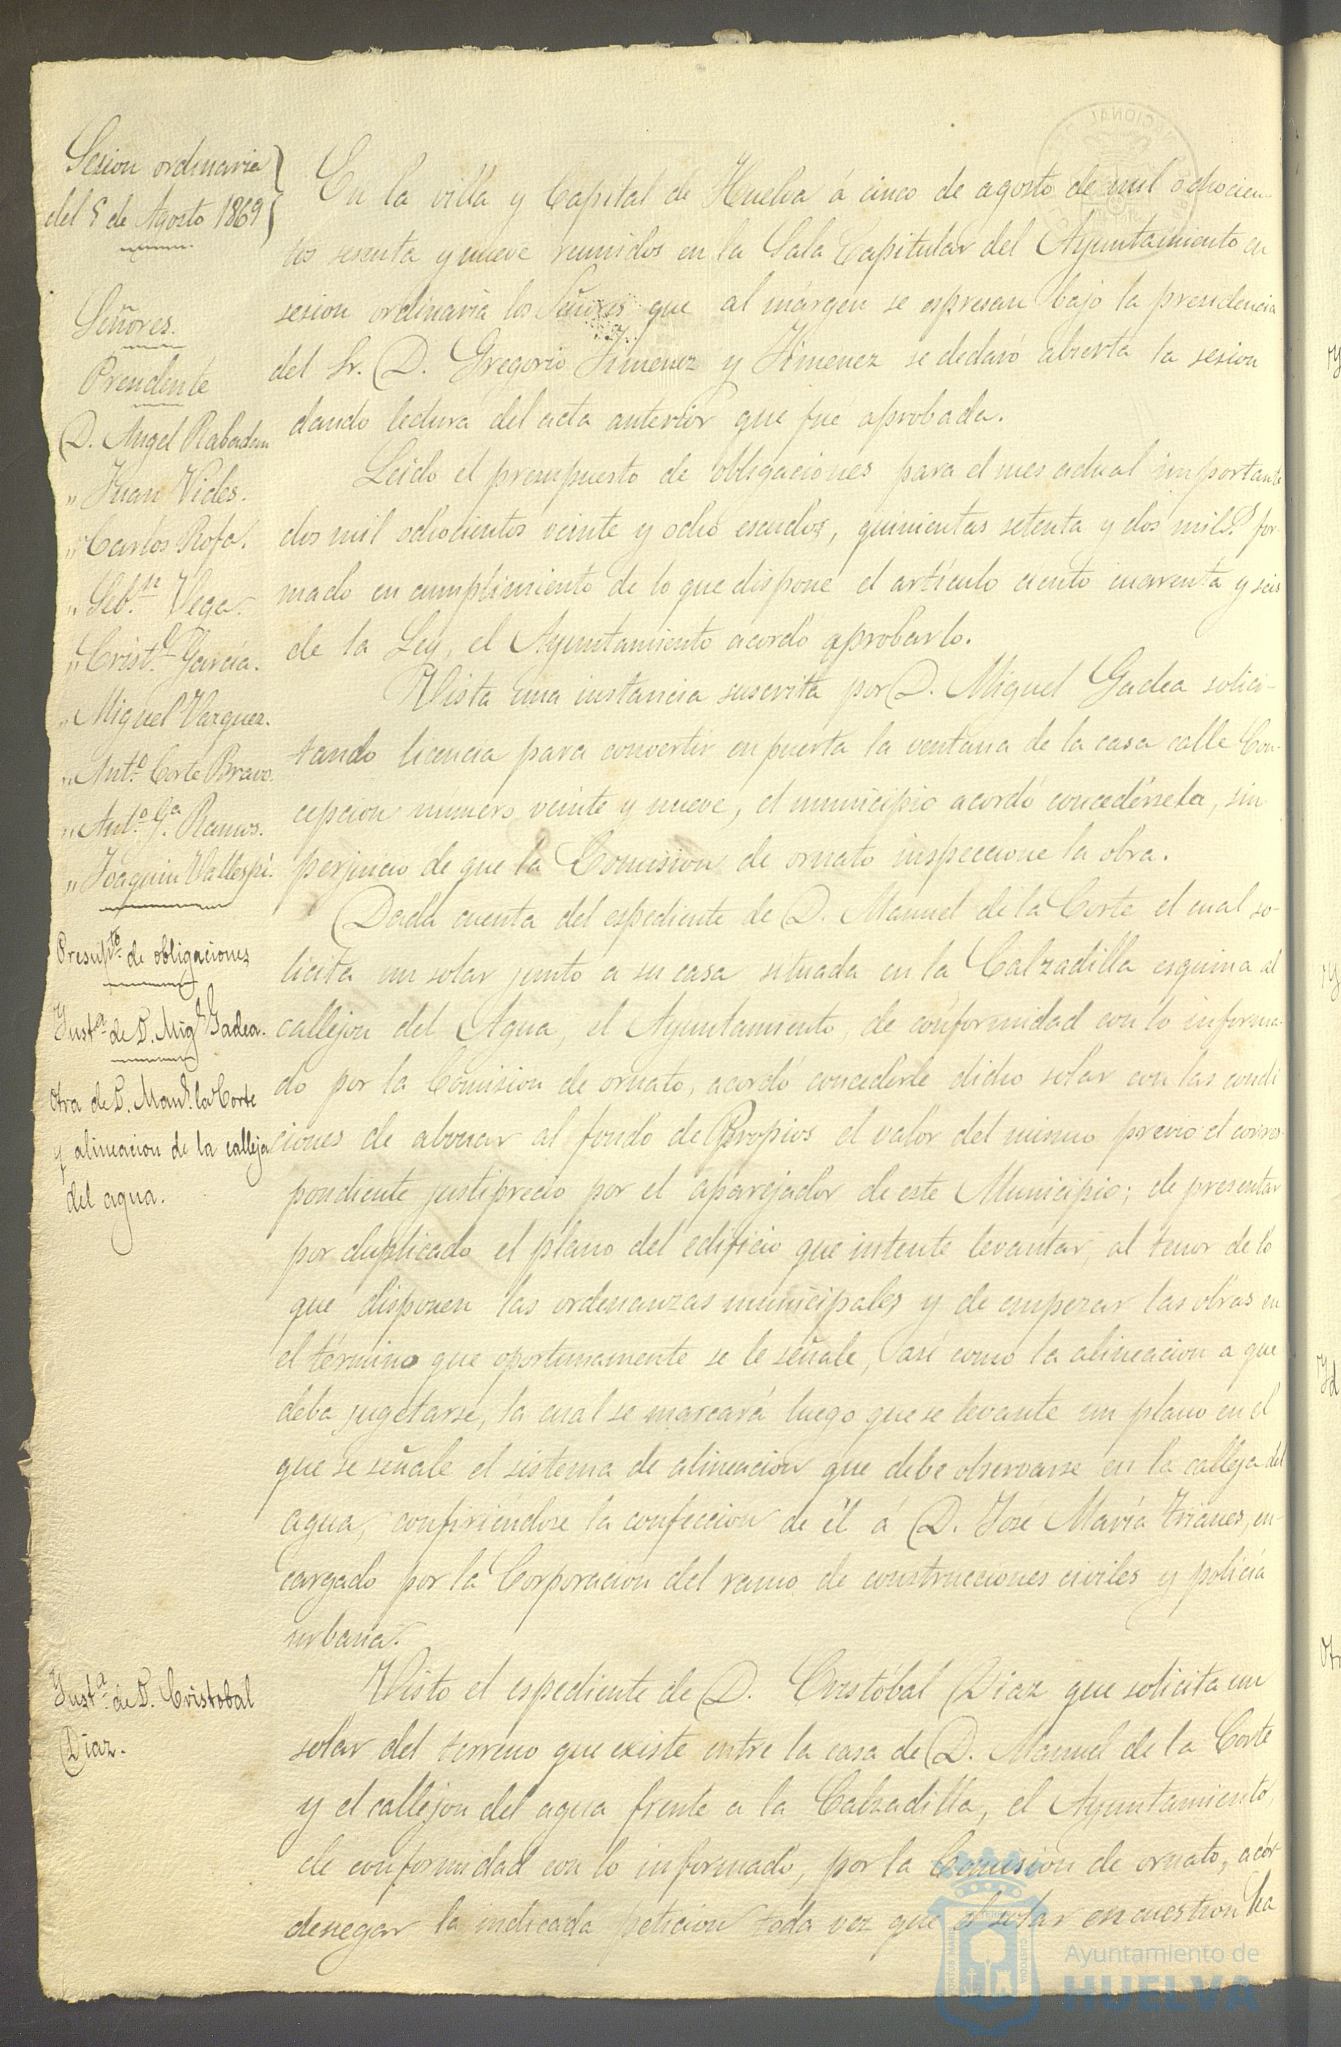 Sesion ordinaria
del 5 de Agosto 1869
Señores.
Presidente
D. Angel Rabadan
" Juan Vides.
" Carlos Rofa.
" Seb.n Vega.
" Crist.l Garcia.
" Miguel Vazquez.
" Ant.o Corte Bravo.
" Ant.o G.a Ramos.
" Joaquin Vallespi.
Presup.to de obligaciones
Inst.a de D. Mig.l Gadea.
Otra de D. Man.l la Corte
y alineacion de la calleja
del agua.
Inst.a de D. Cristobal
Diaz.
En la villa y Capital de Huelva á cinco de agosto de mil ochocien-
tos sesenta y nueve reunidos en la Sala Capitular del Ayuntamiento en
sesion ordinaria los Señores que al márgen se espresan bajo la presidencia
del Sr. D. Gregorio Jimenez y Jimenez se declaró abierta la sesion
dando lectura del acta anterior que fue aprobada.
Leido el presupuesto de obligaciones para el mes actual importante
dos mil ochocientos veinte y ocho escudos, quinientas setenta y dos mil.s for-
mado en cumplimiento de lo que dispone el artículo ciento cuarenta y seis
de la Ley, el Ayuntamiento acordó aprobarlo.
Vista una instancia suscrita por D. Miguel Gadea solici-
tando licencia para convertir en puerta la ventana de la casa calle Con-
cepcion numero veinte y nueve, el municipio acordó concedérsela, sin
perjuicio de que la Comision de ornato inspeccione la obra.
Dada cuenta del espediente de D. Manuel de la Corte el cual so-
licita un solar junto a su casa situada en la Calzadilla esquina al
callejon del Agua, el Ayuntamiento de conformidad con lo informa-
do por la Comision de ornato, acordó concederle dicho solar con las condi
ciones de abonar al fondo de Propios el valor del mismo previo el corres-
pondiente justiprecio por el aparejador de este Municipio; de presentar
por duplicado el plano del edificio que intente levantar, al tenor de lo
que disponen las ordenanzas municipales y de empezar las obras en
el término que oportunamente se le señale, así como la alineacion a que
deba sugetarse, la cual se marcará luego que se levante un plano en el
que se señale el sistema de alineacion que debe observarse en la calleja del
agua, confiriéndose la confeccion de él á D. José María Trianes, en-
cargado por la Corporacion del ramo de construcciones civiles y policía
urbana.
Visto el espediente de D. Cristóbal Diaz que solicita un
solar del terreno que existe entre la casa de D. Manuel de la Corte
y el callejon del agua frente a la Calzadilla, el Ayuntamiento,
de conformidad con lo informado, por la Comision de ornato, acór
denegar la indicada peticion toda vez que el solar en cuestion ha
Ayuntamiento de
HUELVA